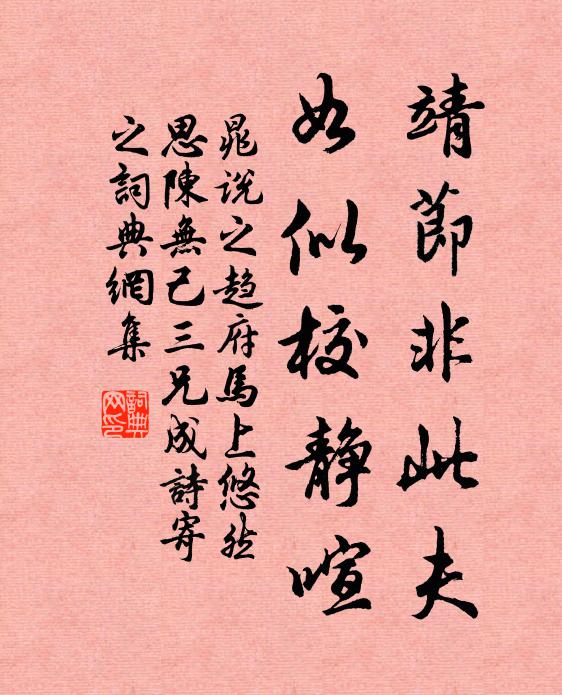 靖節非此夫
如似校靜喧
晁説之趋府馬上悠然
思陳無己三兄成詩寄
之詞典網集
詞典网印